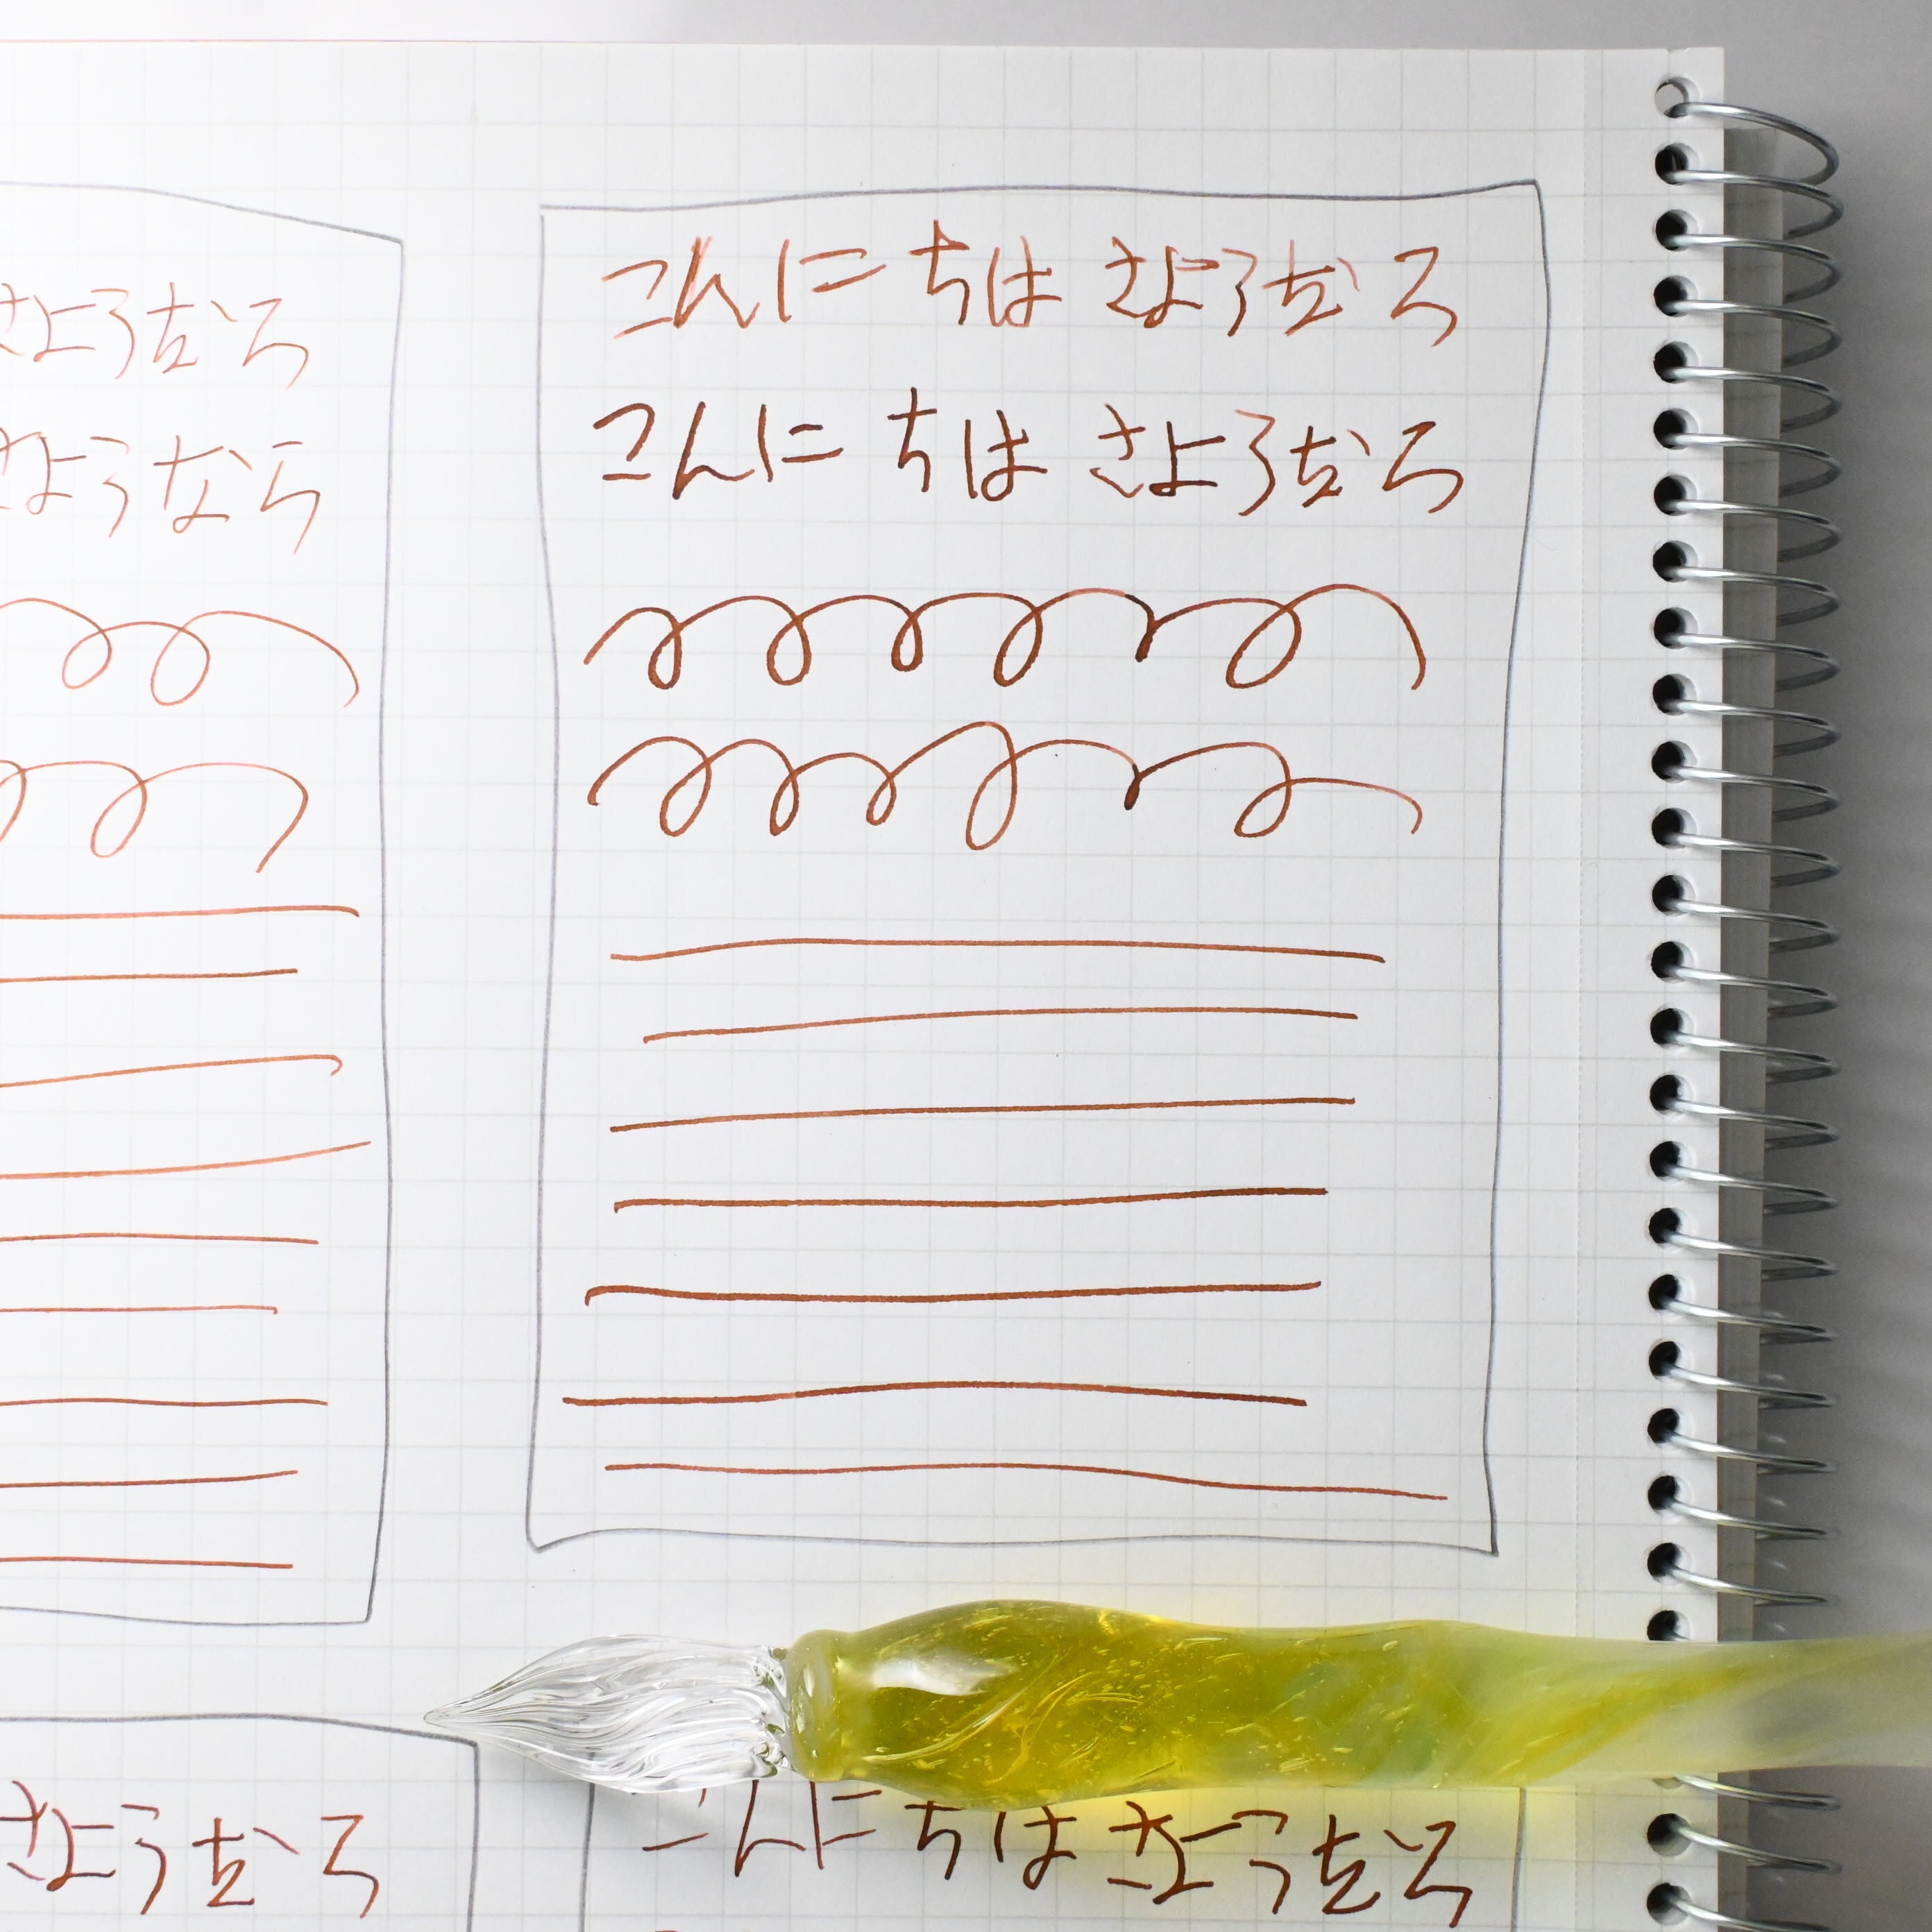 さようなら
さようなら
こんにちは さようなら
こんにちは さようなら
さようなら
こんにちは さようなら